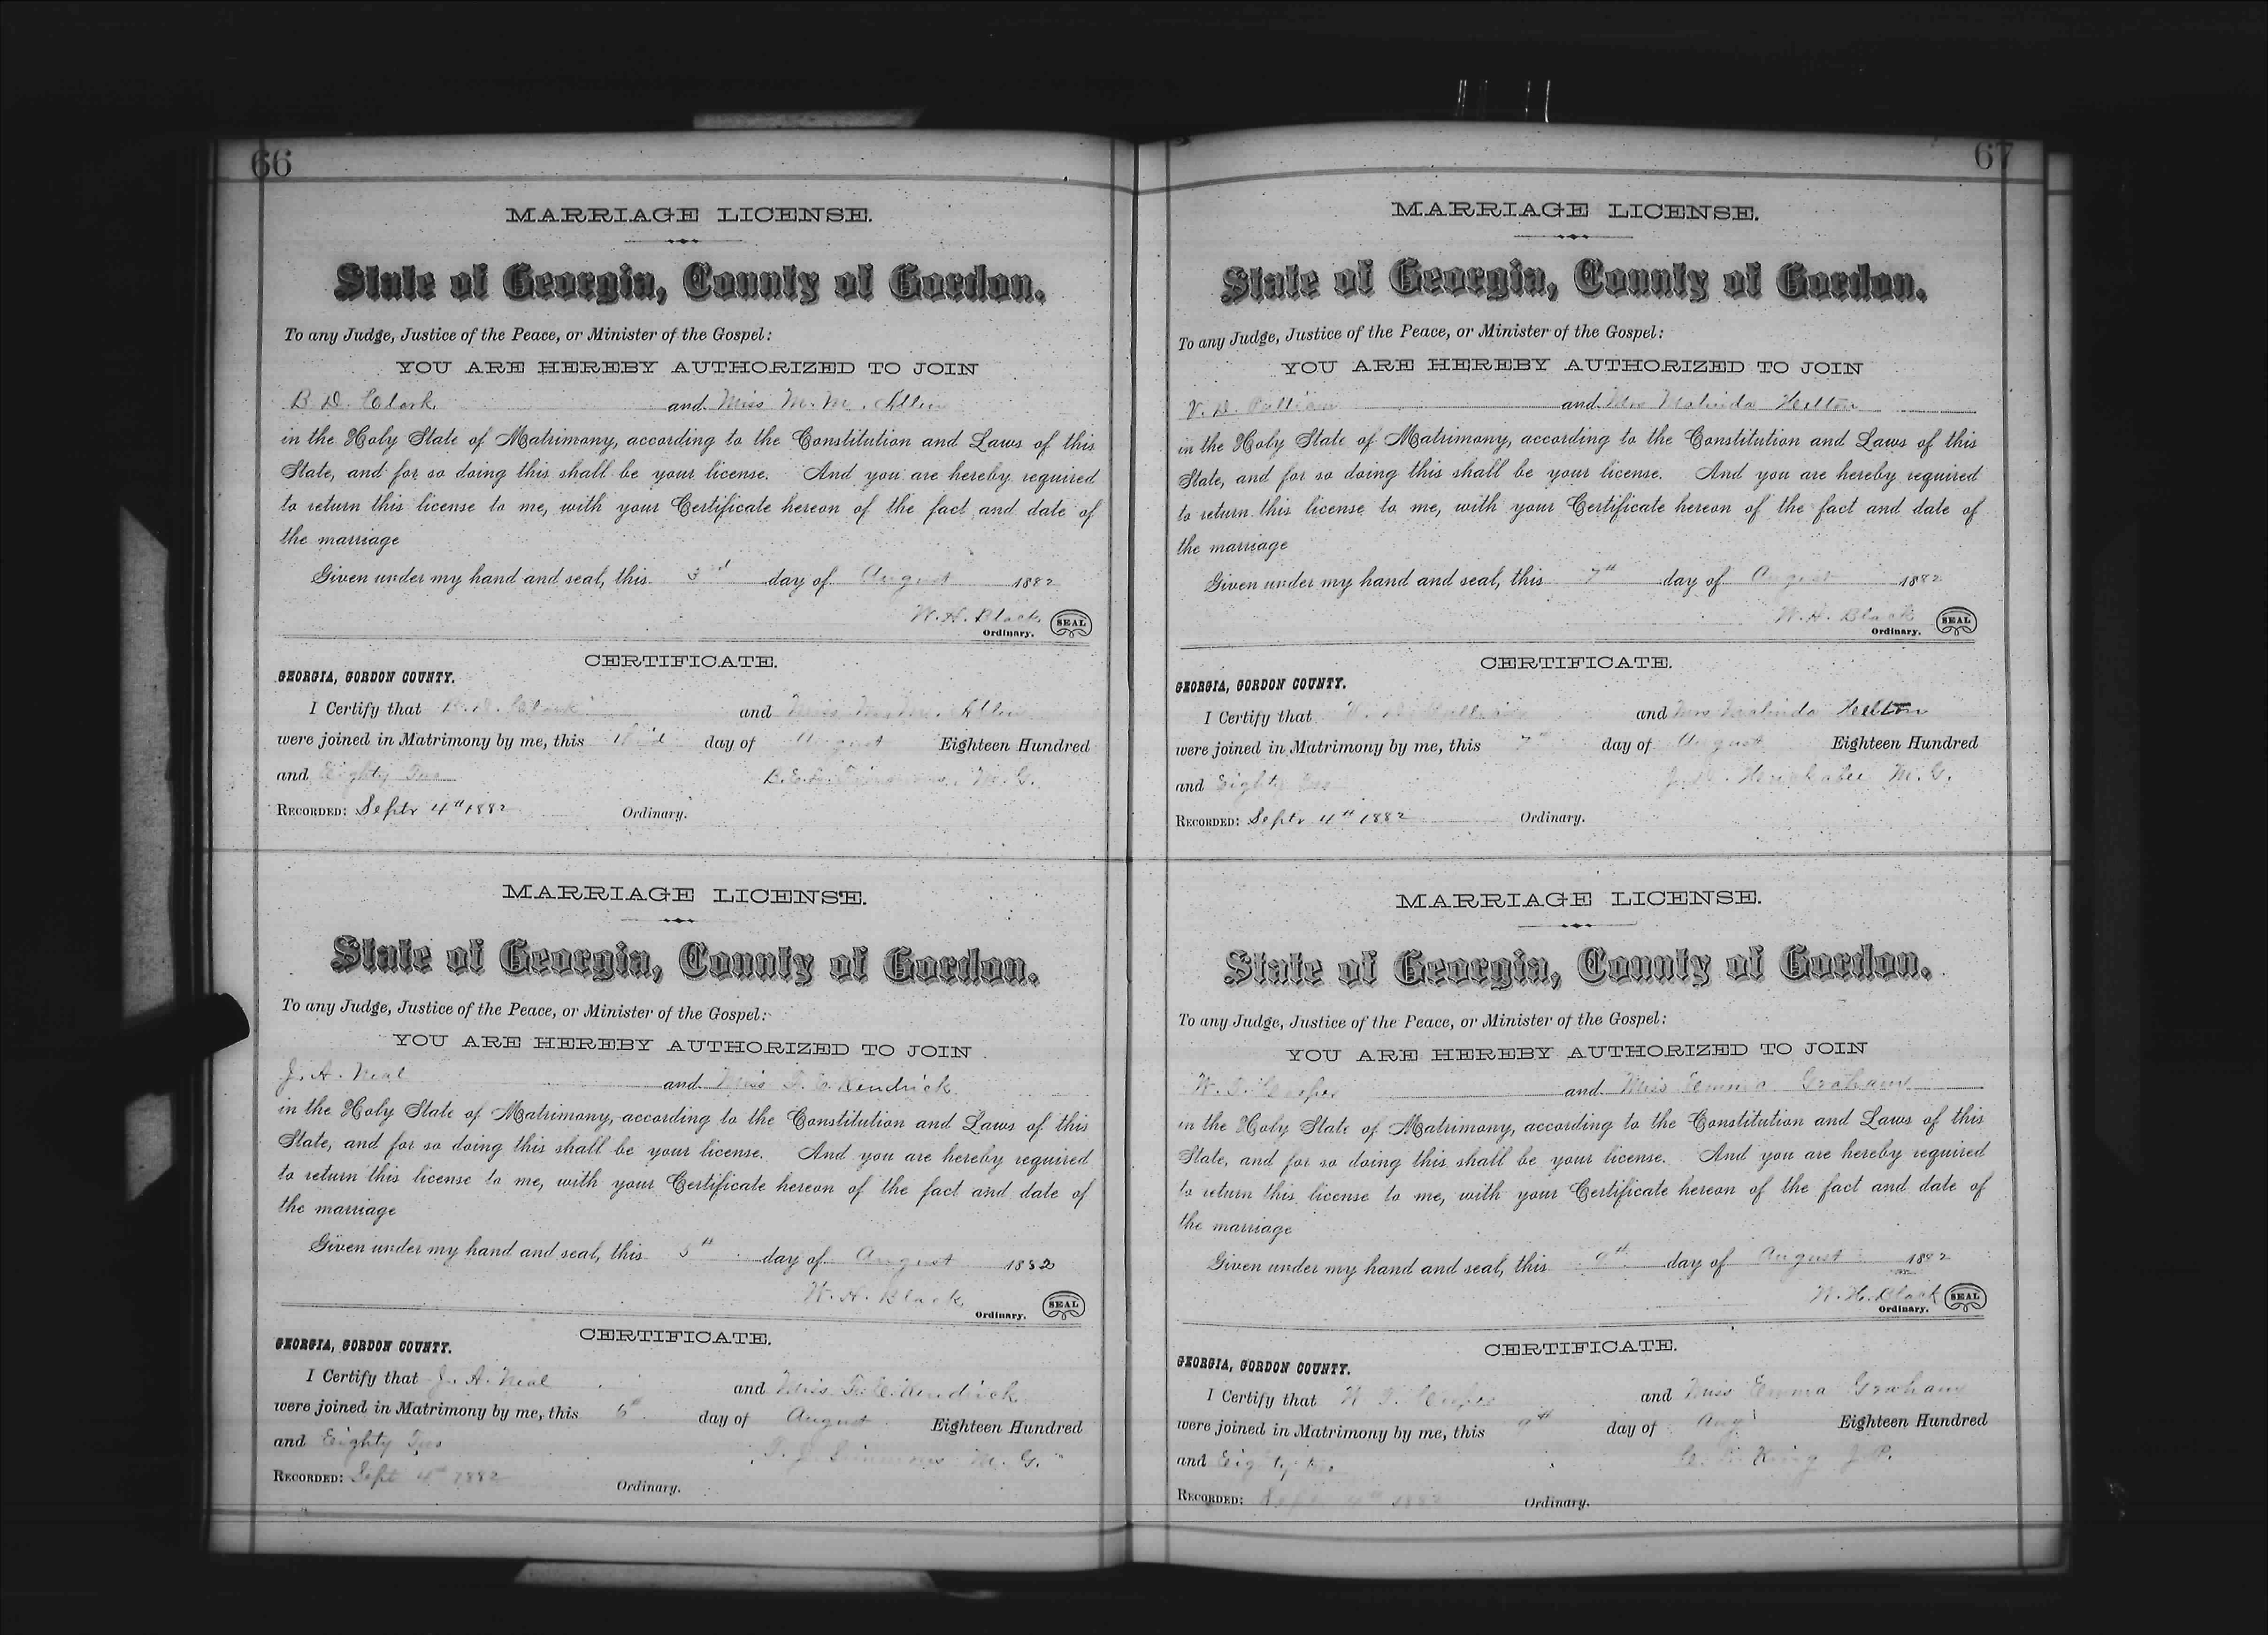 66
MARRIAGE LICENSE.
State of Georgia, County of Gordon.
To any Judge, Justice of the Peace, or Minister of the Gospel:
YOU ARE HEREBY AUTHORIZED TO JOIN
B. D. Clark and Miss M. M. Allen
in the Holy State of Matrimony, according to the Constitution and Laws of this
State, and for so doing this shall be your license. And you are hereby required
to return this license to me, with your Certificate hereon of the fact and date of
the marriage
Given under my hand and seal, this 3rd day of August 1882
W. H. Black SEAL
Ordinary.
CERTIFICATE.
GEORGIA, GORDON COUNTY.
I Certify that B. D. Clark and Miss M. M. Allen
were joined in Matrimony by me, this third day of August Eighteen Hundred
and Eighty Two M. G.
RECORDED: Septr 4th 1882 Ordinary.
MARRIAGE LICENSE.
State of Georgia, County of Gordon.
To any Judge, Justice of the Peace, or Minister of the Gospel:
YOU ARE HEREBY AUTHORIZED TO JOIN
J. A. Neal and Miss Kendrick
in the Holy State of Matrimony, according to the Constitution and Laws of this
State, and for so doing this shall be your license. And you are hereby required
to return this license to me, with your Certificate hereon of the fact and date of
the marriage
Given under my hand and seal, this 5th day of August 1882
W. H. Black SEAL
Ordinary.
CERTIFICATE.
GEORGIA, GORDON COUNTY.
I Certify that J. A. Neal and Miss Kendrick
were joined in Matrimony by me, this 6th day of August Eighteen Hundred
and Eighty Two Simmons M. G.
RECORDED: Sept 4th 1882 Ordinary.
67
MARRIAGE LICENSE.
State of Georgia, County of Gordon.
To any Judge, Justice of the Peace, or Minister of the Gospel:
YOU ARE HEREBY AUTHORIZED TO JOIN
V. D. Pulliam and Mrs Malinda Helton
in the Holy State of Matrimony, according to the Constitution and Laws of this
State, and for so doing this shall be your license. And you are hereby required
to return this license to me, with your Certificate hereon of the fact and date of
the marriage
Given under my hand and seal, this 7th day of August 1882
W. H. Black SEAL
Ordinary.
CERTIFICATE.
GEORGIA, GORDON COUNTY.
I Certify that and Mrs Malinda Helton
were joined in Matrimony by me, this 7th day of August Eighteen Hundred
and Eighty Two M. G.
RECORDED: Septr 4th 1882 Ordinary.
MARRIAGE LICENSE.
State of Georgia, County of Gordon.
To any Judge, Justice of the Peace, or Minister of the Gospel:
YOU ARE HEREBY AUTHORIZED TO JOIN
and Miss Emma Graham
in the Holy State of Matrimony, according to the Constitution and Laws of this
State, and for so doing this shall be your license. And you are hereby required
to return this license to me, with your Certificate hereon of the fact and date of
the marriage
Given under my hand and seal, this 9th day of August 1882
W. H. Black SEAL
Ordinary.
CERTIFICATE.
GEORGIA, GORDON COUNTY.
I Certify that and Miss Emma Graham
were joined in Matrimony by me, this 9th day of Aug Eighteen Hundred
and Eighty two King J. P.
RECORDED: 4th 1882 Ordinary.